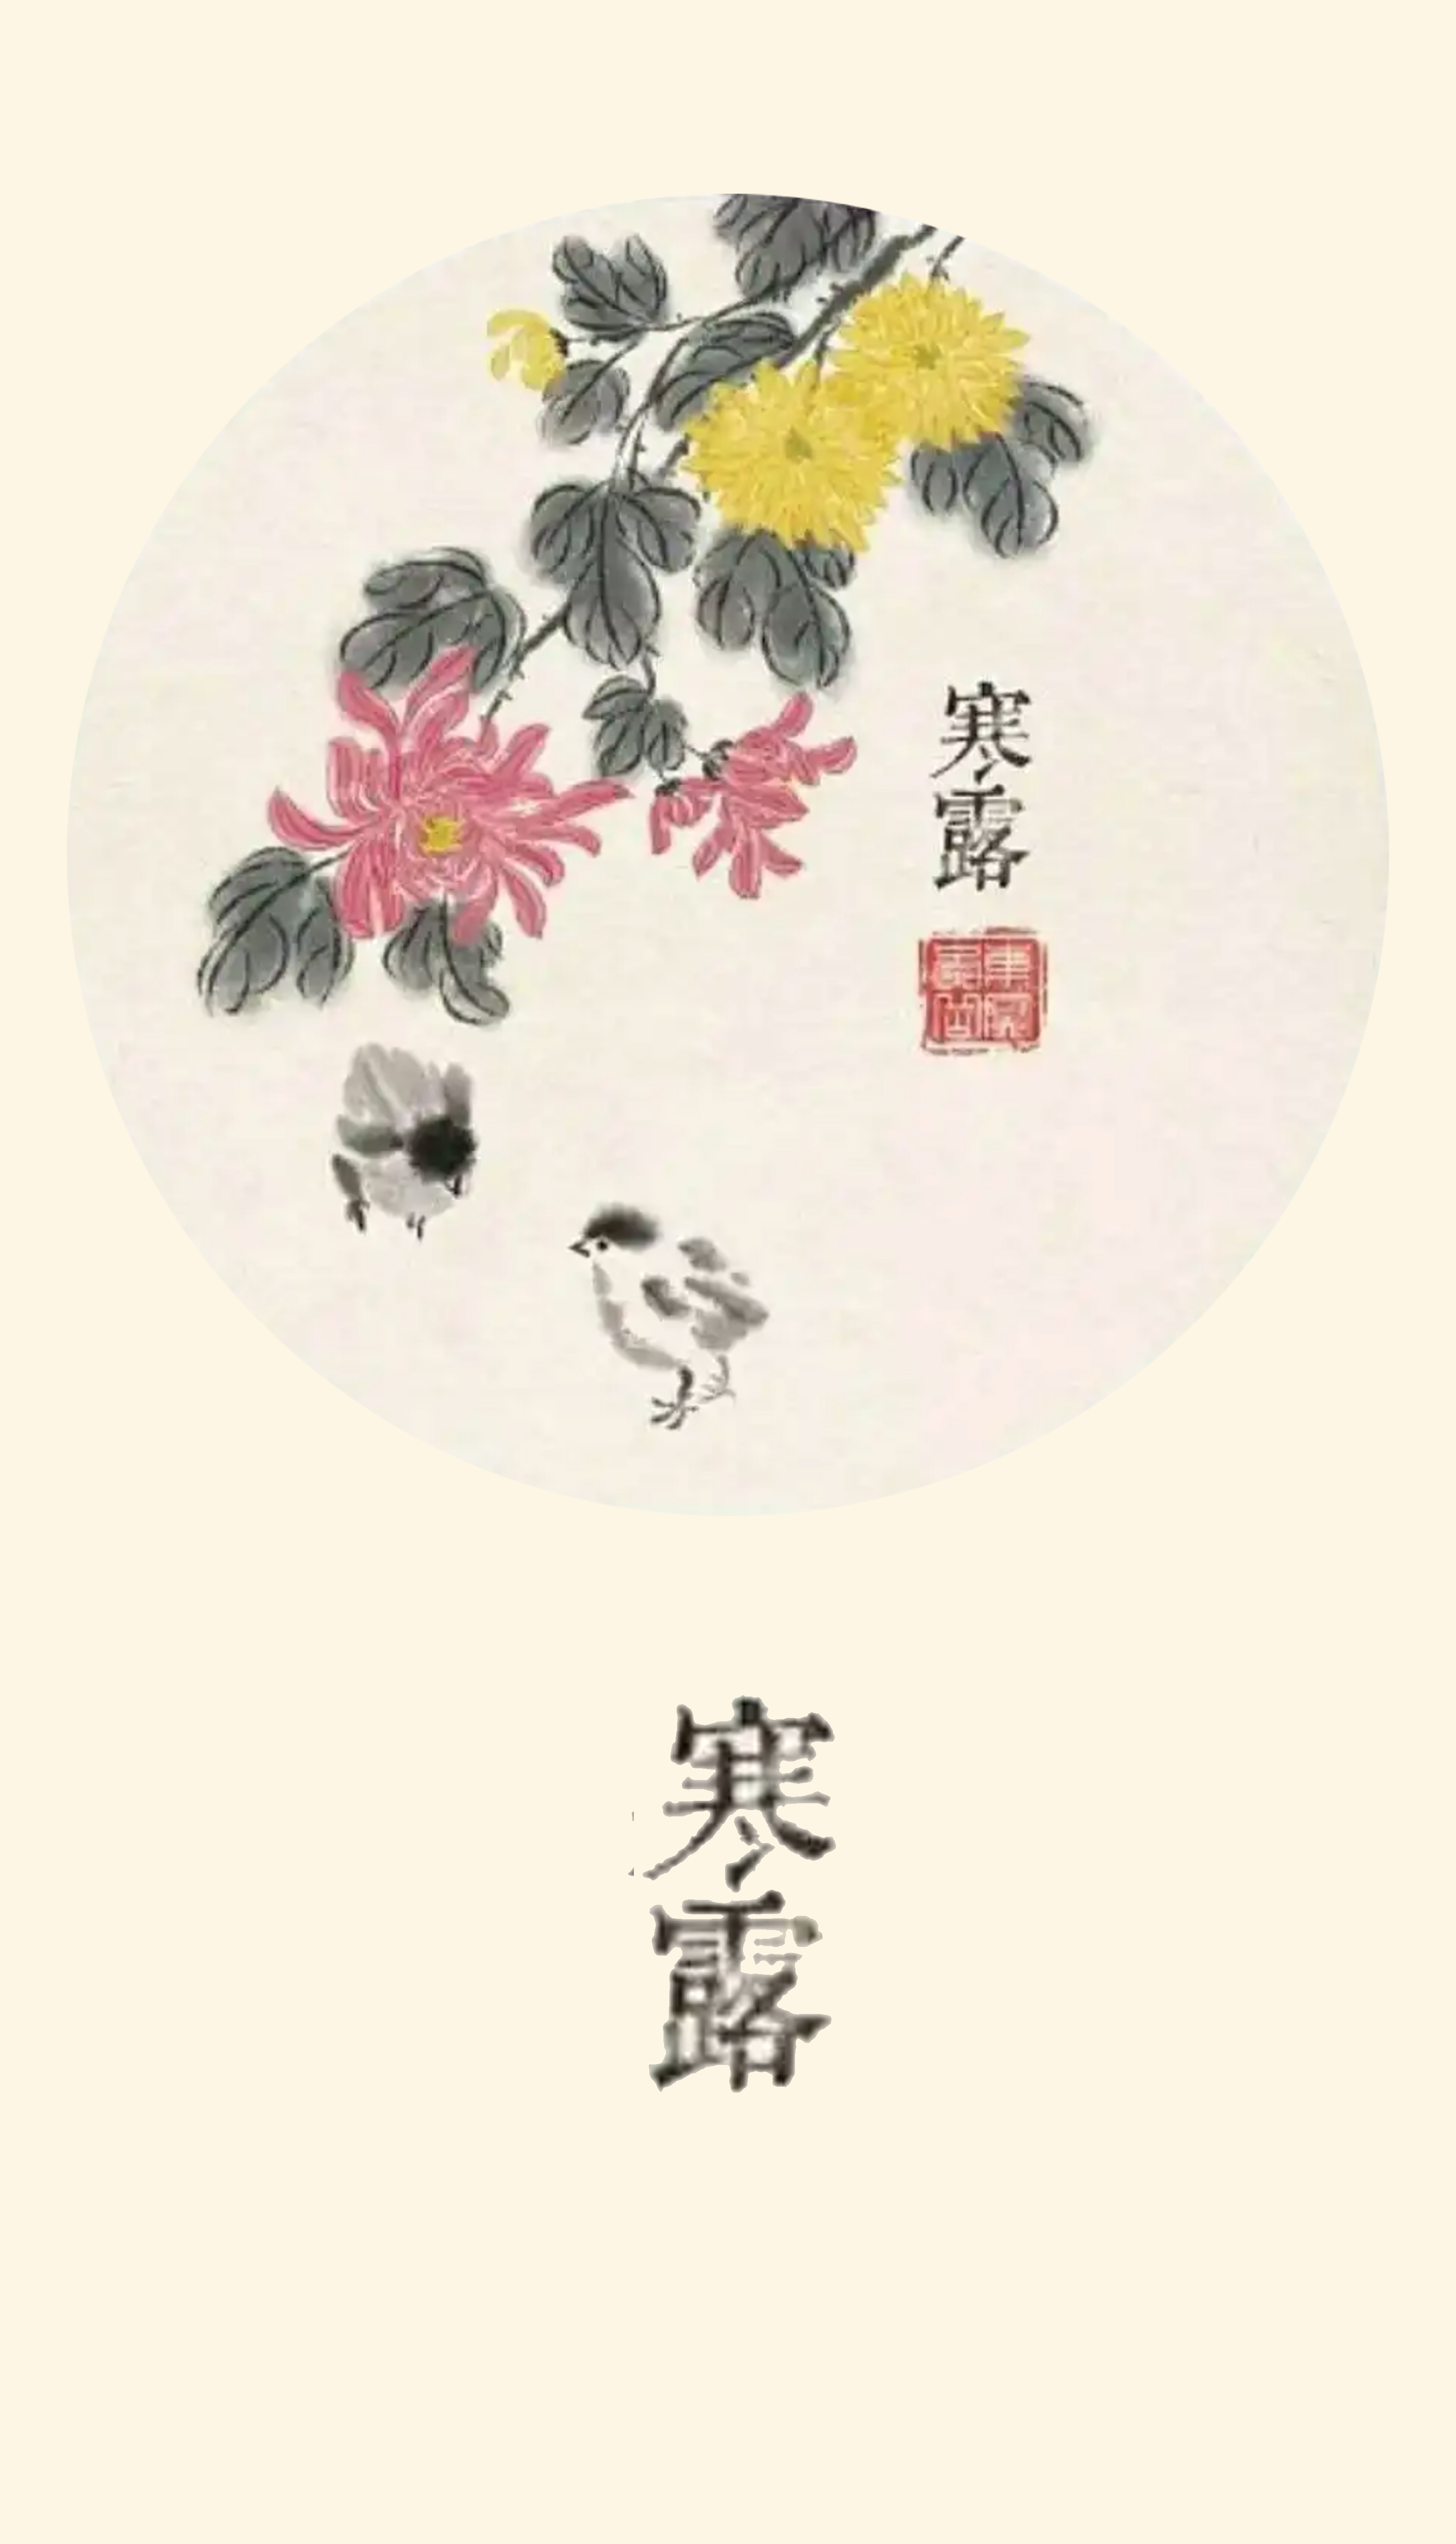 寒露
寒露